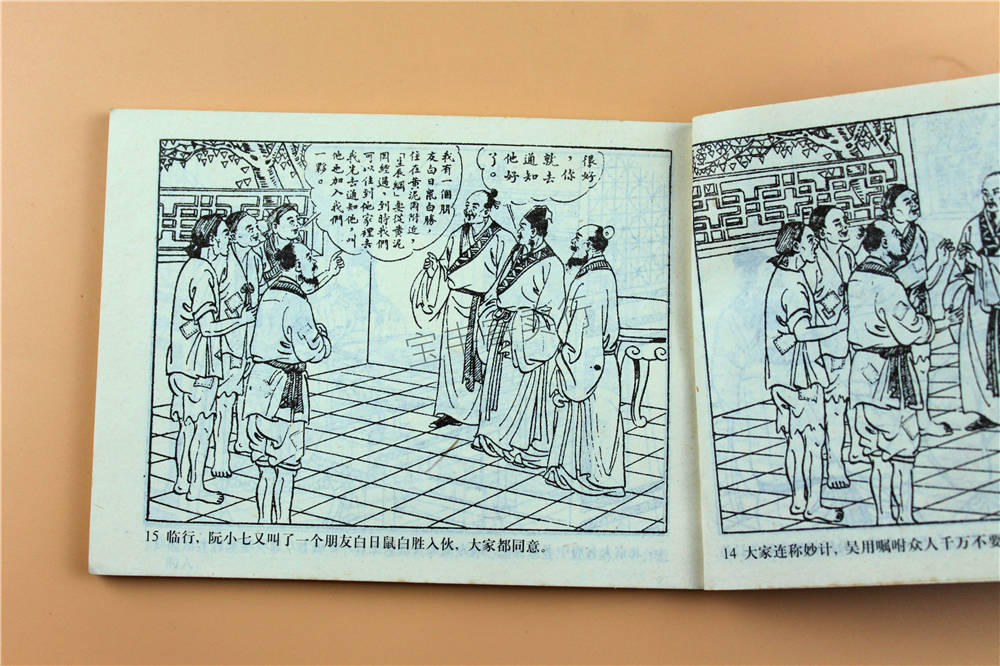 我有一個朋
友白日鼠白勝，
住在黃泥岡附近，
「生辰綱」要從黃泥
岡經過，到時我們
可以住到他家裡去
我先去通知他，叫
他也加入我們
一夥。
很好
，你
就去
通知
他好
了。
15 临行，阮小七又叫了一个朋友白日鼠白胜入伙，大家都同意。
14 大家连称妙计，吴用嘱咐众人千万不要